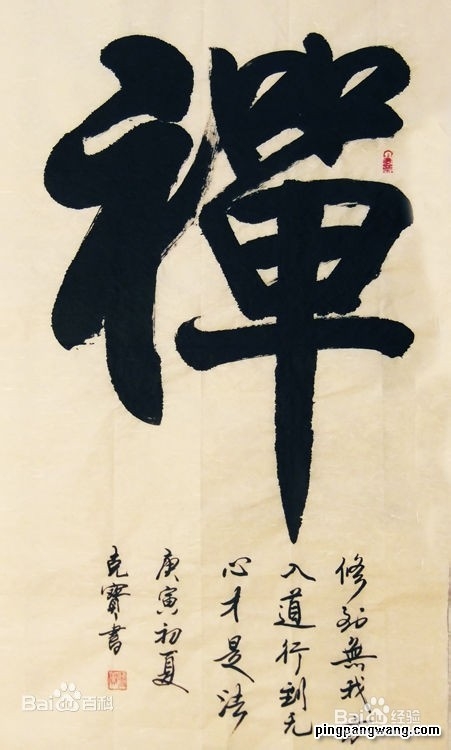 禪
修到無我
入道行到无
心才是法
庚寅初夏
克寶書
Bai百科
Bai经验
pingpangwang.com